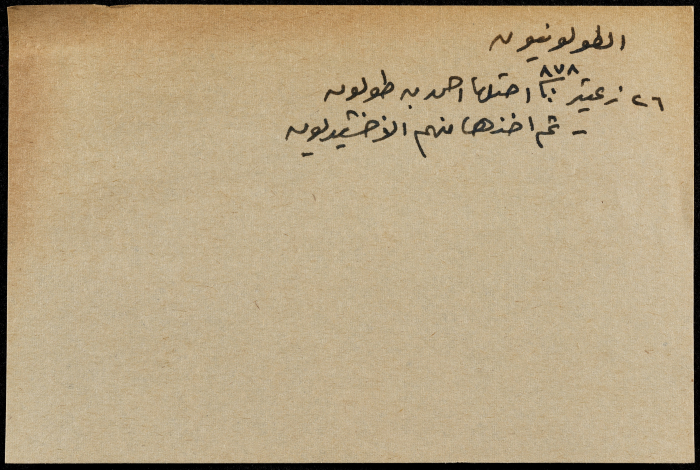 الطولونيون
٢٦ زعيتر : ٨٧٨ احتلها احمد بن طولون
- ثم اخذها منهم الاخشيديون